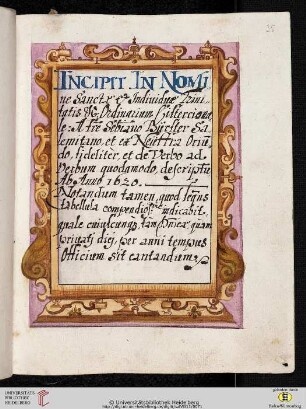 35
INCIPIT IN NOMI
ne Sanctæ et Individuæ Trini
tatis Ordinarium Cistercien
le: A Fre Sebiano Bürster Sa
lemitano, et ex Neüffra Oriü
do, fideliter, et de Verbo ad
Verbum quodammodo descriptū
Ao Anno 1620.
Notandum tamen, quod seqūs
tabellula compendiosē indicabit,
quale cuiuscunqȝ, tam Dnicæ quam
privati diej, per anni tempus
Officium sit cantandum.
UNIVERSITÄTS-
BIBLIOTHEK
HEIDELBERG
© Universitätsbibliothek Heidelberg